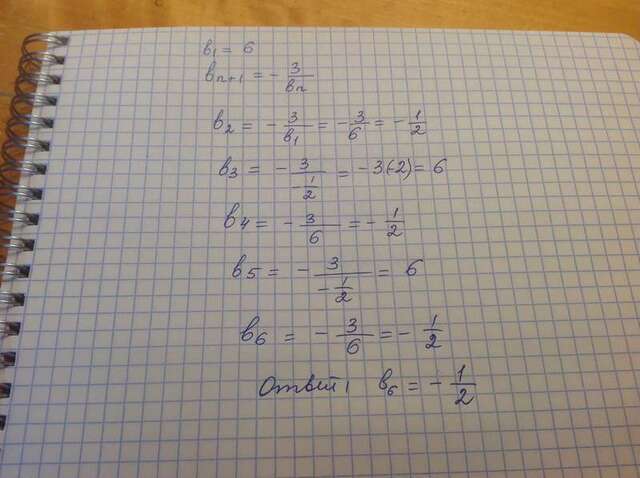 b₁ = 6
bₙ₊₁ = - 3/bₙ
b₂ = - 3/b₁ = - 3/6 = - 1/2
b₃ = - 3/(- 1/2) = - 3(-2) = 6
b₄ = - 3/6 = - 1/2
b₅ = - 3/(- 1/2) = 6
b₆ = - 3/6 = - 1/2
Ответ: b₆ = - 1/2